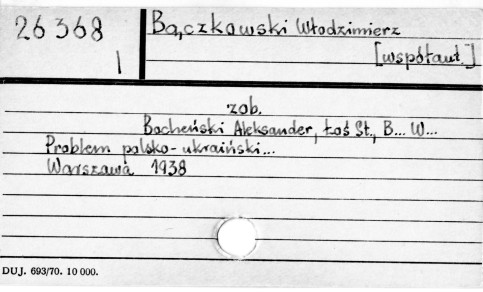 26368
I
Bączkowski Włodzimierz
[współaut.]
zob.
Bocheński Aleksander, Łoś St., B... W...
Problem polsko-ukraiński...
Warszawa 1938
DUJ. 693/70. 10 000.